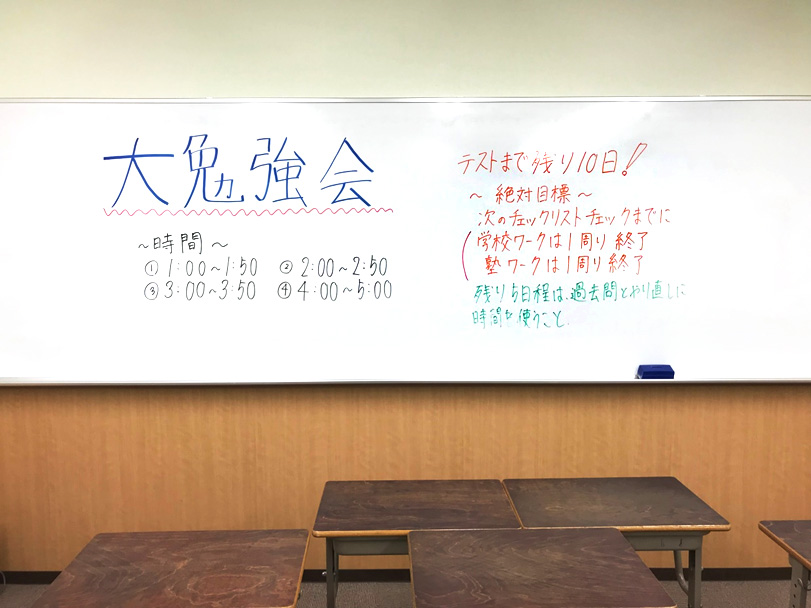 大勉強会
~時間~
① 1:00~1:50 ② 2:00~2:50
③ 3:00~3:50 ④ 4:00~5:00
テストまで残り10日!
~ 絶対目標 ~
次のチェックリストチェックまでに
学校ワークは1周り終了
塾ワークは1周り終了
残り5日程は、過去問とやり直しに
時間を使うこと.